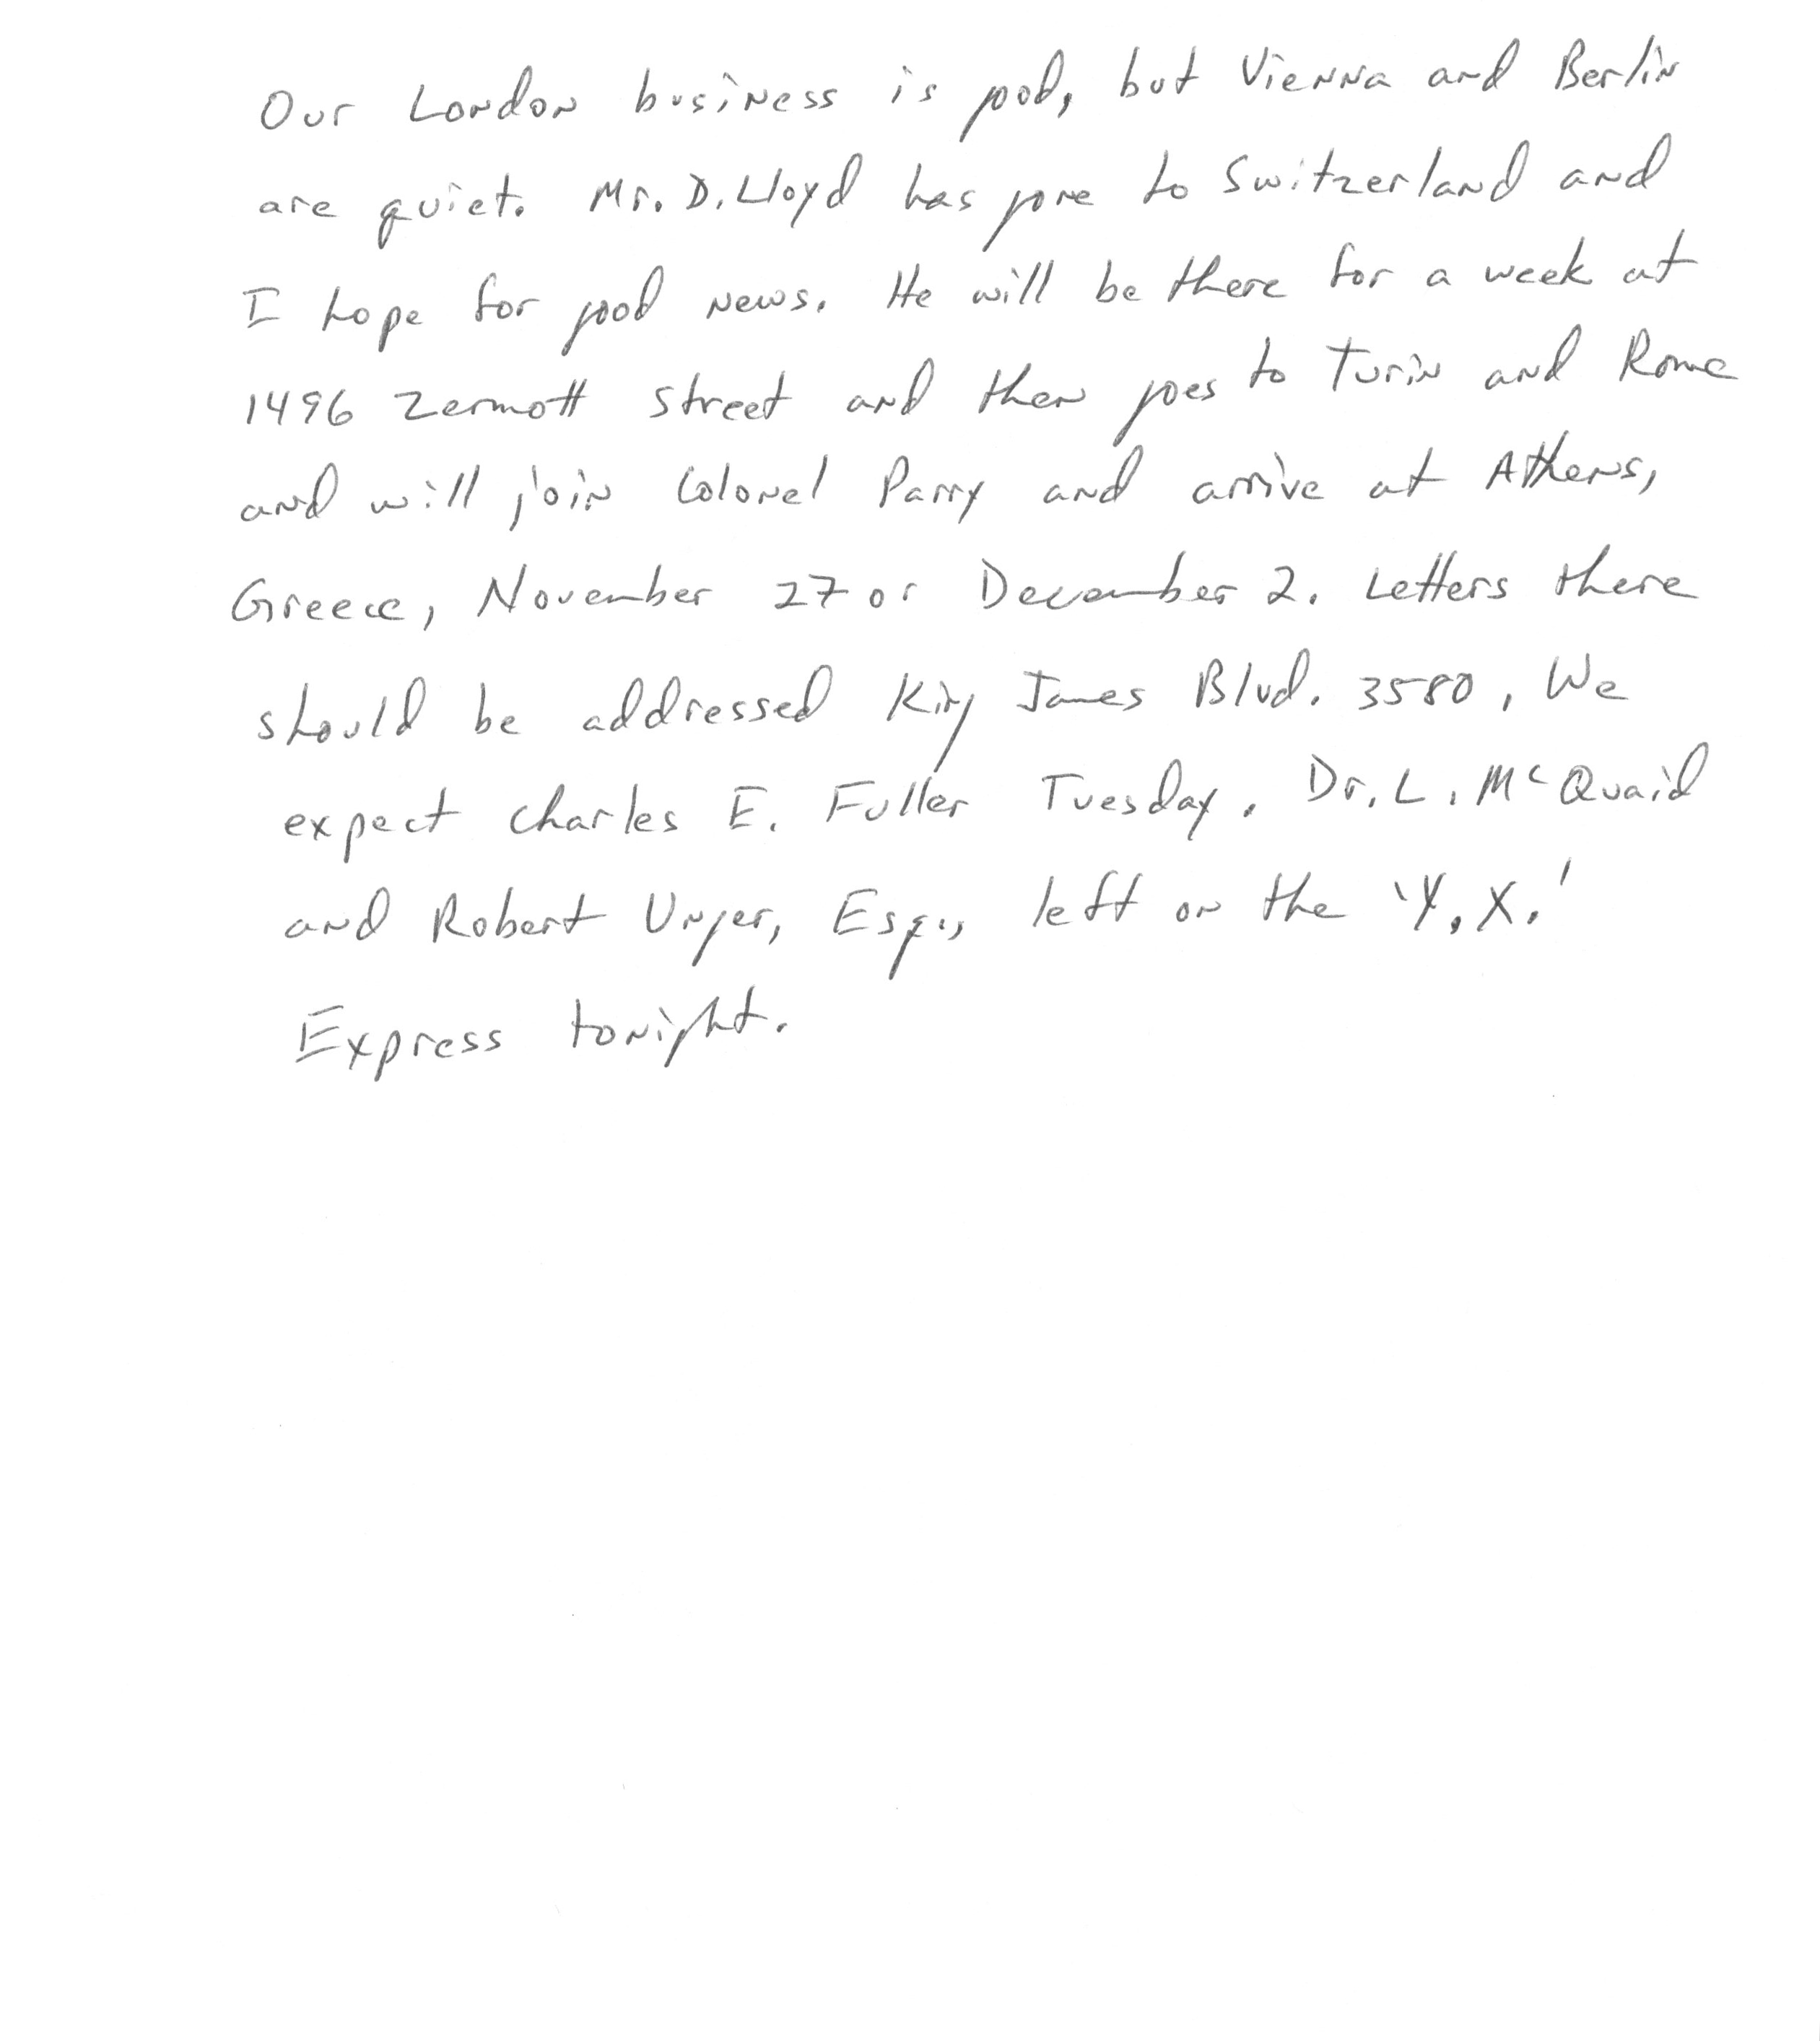 Our London business is good, but Vienna and Berlin
are quiet. Mr. D. Lloyd has gone to Switzerland and
I hope for good news. He will be there for a week at
1496 Zermott street and then goes to Turin and Rome
and will join Colonel Parry and arrive at Athens,
Greece, November 27 or December 2. Letters there
should be addressed King James Blvd. 3580. We
expect Charles E. Fuller Tuesday. Dr. L. McQuaid
and Robert Unger, Esq., left on the 'Y.X.'
Express tonight.